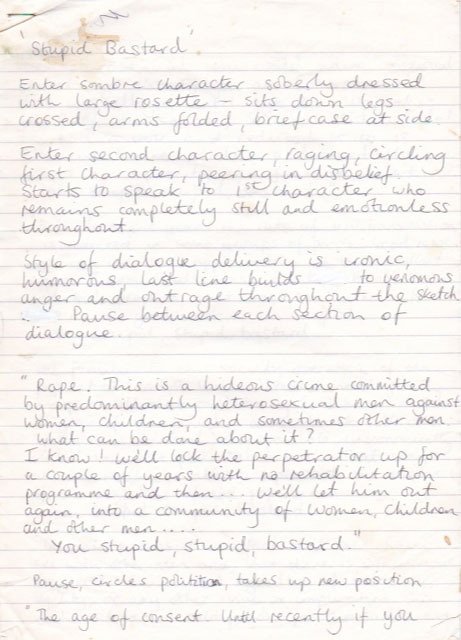 'Stupid Bastard'
Enter sombre character soberly dressed
with large rosette – sits down legs
crossed, arms folded, briefcase at side.
Enter second character, raging, circling
first character, peering in disbelief.
Starts to speak to 1st character who
remains completely still and emotionless
throughout.
Style of dialogue delivery is ironic,
humorous, last line builds to venomous
anger and outrage throughout the sketch
.. Pause between each section of
dialogue.
"Rape. This is a hideous crime committed
by predominantly heterosexual men against
women, children, and sometimes other men.
What can be done about it?
I know! We'll lock the perpetrator up for
a couple of years with no rehabilitation
programme and then... We'll let him out
again, into a community of women, children
and other men....
You stupid, stupid, bastard."
Pause, circles politition, takes up new position
"The age of consent. Until recently if you